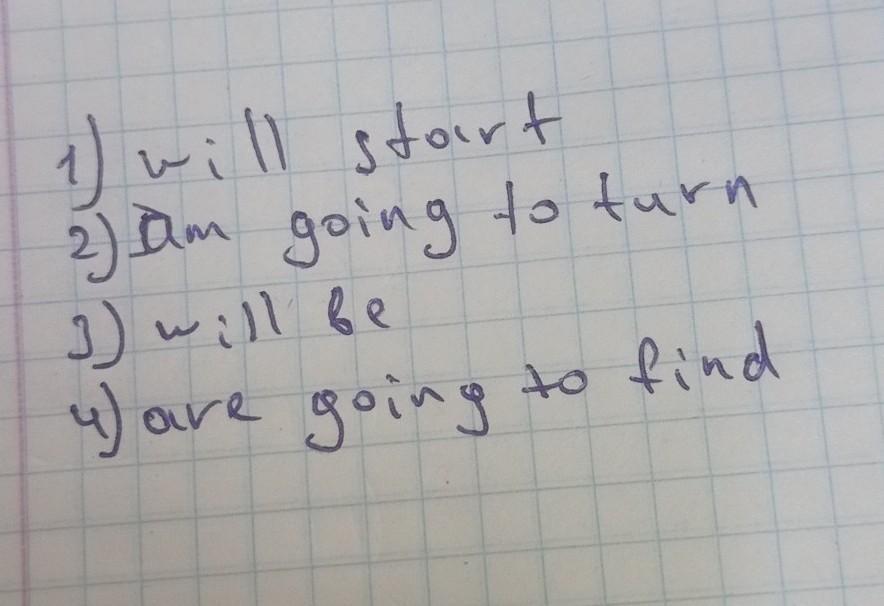 1) will start
2) am going to turn
3) will be
4) are going to find